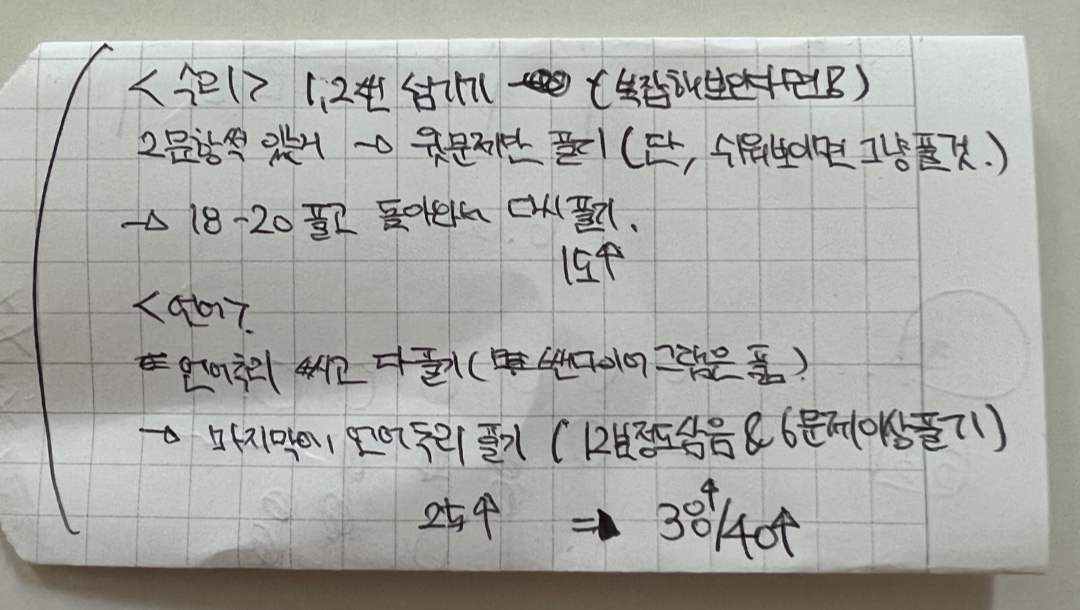 <수리> 1,2번 넘기기 (복잡해보인다면)
2문항씩 있는거 → 윗문제만 풀기 (단, 쉬워보이면 그냥 풀것.)
→ 18-20 풀고 돌아와서 다시 풀기.
15↑
<언어>.
언어추리 빼고 다 풀기 (벤다이어그램은 품.)
→ 마지막에 언어추리 풀기 (12분정도 남음 & 6문제이상풀기)
25↑ ⇒ 38↑/40↑